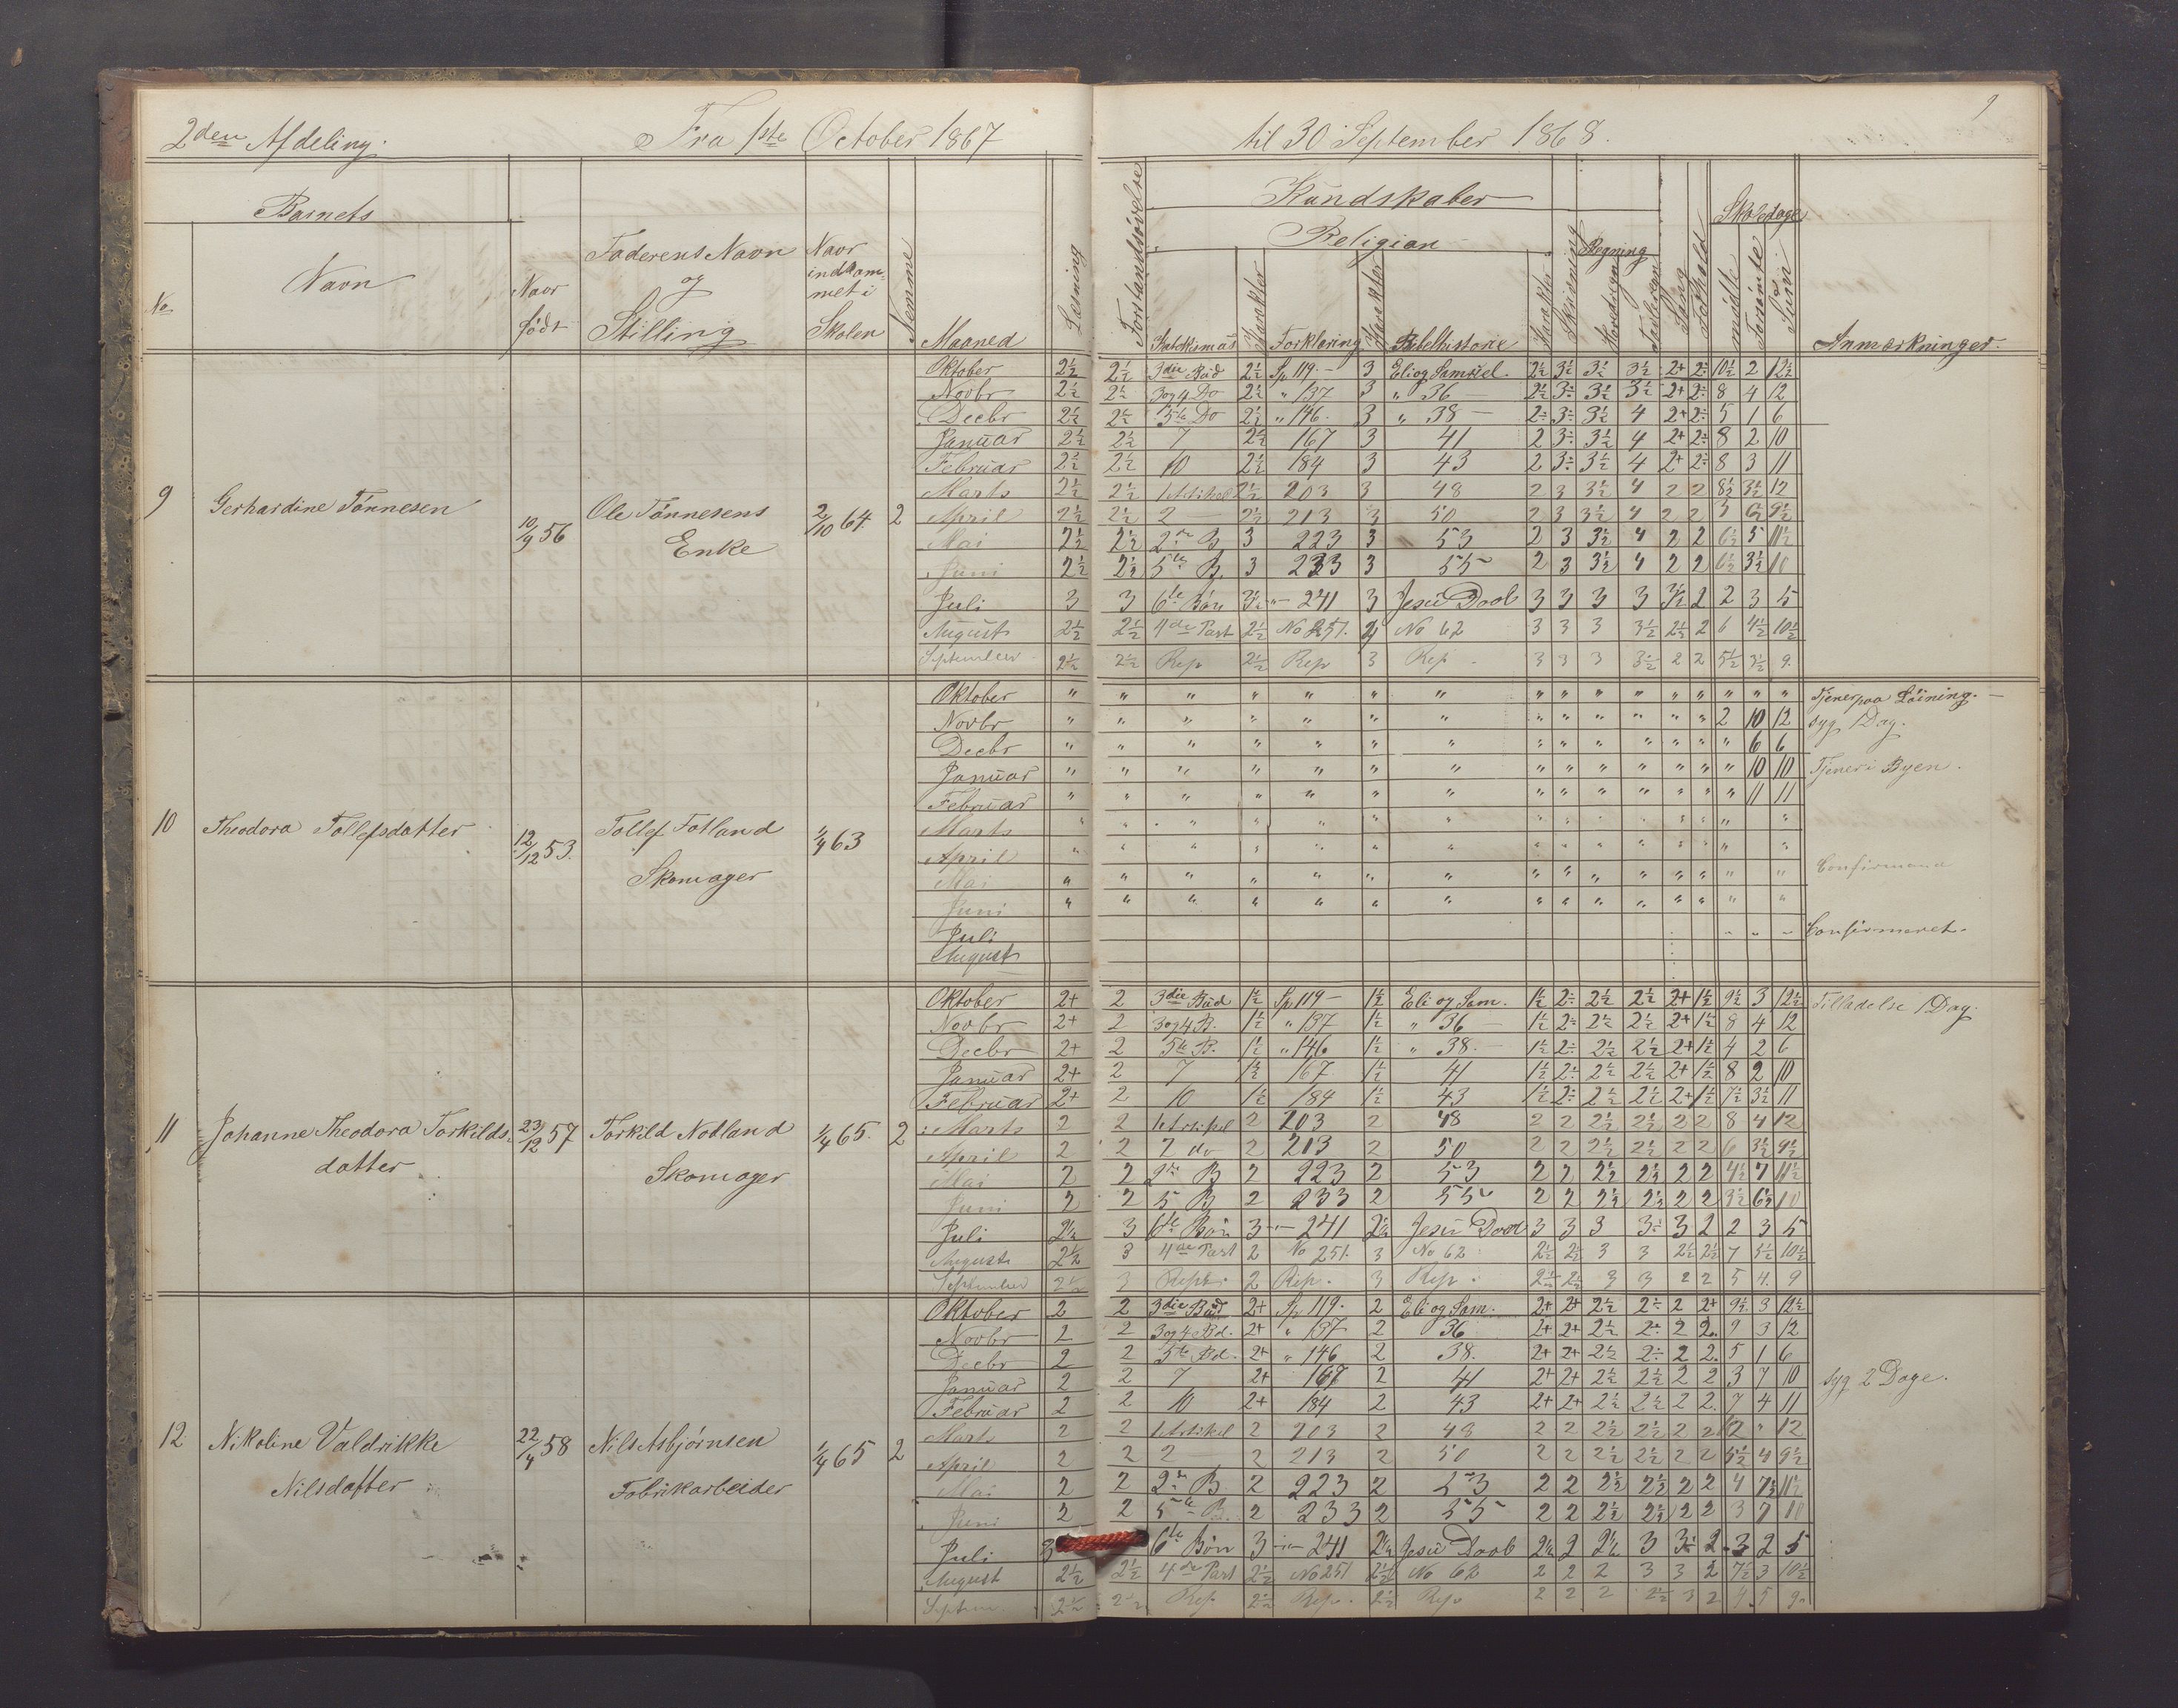 2den Afdeling. Fra 1ste October 1867 til 30 September 1868. 9
Barnets
No
Navn
Naar født
Faderens Navn og Stilling
Naar indkommet i Skolen
Nemme
Maaned
Læsning
Forstandsøvelse
Kundskaber
Religion
Katekismus
Karakter
Forklaring
Karakter
Bibelhistorie
Karakter
Skrivning
Regning
Hovedregn
Tavleregn
Sang
Forhold
Skoledage
mødte
Forsømte
Sum
Anmærkninger.
9 Gerhardine Tønnesen 10/9 56 Ole Tønnesens Enke 2/10 64 2
Oktober 2½ 2½ 3die Bud 2½ Sp 119 3 Eli og Samuel. 2½ 3½ 3½ 3½ 2+ 2÷ 10½ 2 12½
Novbr 2½ 2½ 3 og 4 Do 2½ " 137 3 " 36 2½ 3÷ 3½ 3½ 2+ 2÷ 8 4 12
Decbr 2½ 2½ 5te Do 2½ " 146. 3 " 38 2÷ 3÷ 3½ 4 2+ 2÷ 5 1 6
Januar 2½ 2½ 7 2½ 167 3 41 2 3÷ 3½ 4 2+ 2÷ 8 2 10
Februar 2½ 2½ 10 2½ 184 3 43 2 3÷ 3½ 4 2+ 2÷ 8 3 11
Marts 2½ 2½ 1 Artikel 2½ 203 3 48 2 3 3½ 4 2 2 8½ 3½ 12
April 2½ 2½ 2 2½ 213 3 50 2 3 3½ 4 2 2 3 6½ 9½
Mai 2½ 2½ 2den B 3 223 3 53 2 3 3½ 4 2 2 6½ 5 11½
Juni 2½ 2½ 5te B. 3 233 3 55 2 3 3½ 4 2 2 6½ 3½ 10
Juli 3 3 6te Bøn 3½ 241 3 Jesu Død 3 3 3 3 3½ 2 2 3 5
August 2½ 2½ 4de Part 2½ No 251. No 62 3 3 3 3½ 2½ 2 6 4½ 10½
September 2½ 2½ Rep 2½ Rep 3 Rep 3 3 3 3½ 2 2 5½ 3½ 9.
10 Theodora Tollefsdatter 12/12 53. Tollef Fotland Skomager 1/4 63
Oktober " " " " " " " " " " " " " " " " Tjener paa Løining.
Novbr " " " " " " " " " " " " " 2 10 12 syg 1 Dag.
Decbr " " " " " " " " " " " " " " 6 6
Januar " " " " " " " " " " " " " " 10 10 Tjener i Byen.
Februar " " " " " " " " " " " " " " 11 11
Marts " " " " " " " " " " " " " " "
April " " " " " " " " " " " " " " "
Mai " " " " " " " " " " " " " " " Confirmand
Juni " " " " " " " " " " " " " " "
Juli " " " Confirmeret.
August
11 Johanne Theodora Torkildsdatter 23/12 57 Torkild Nodland Skomager 1/4 65. 2
Oktober 2+ 2 3die Bud 1½ Sp 119 1½ Eli og Sam. 1½ 2÷ 2½ 2½ 2+ 1½ 9½ 3 12½ Tilladelse 1 Dag.
Novbr 2+ 2 3 og 4 B. 1½ " 137 1½ " 36 1½ 2÷ 2½ 2½ 2+ 1½ 8 4 12
Decbr 2+ 2 5te B. 1½ " 146 1½ " 38. 1½ 2÷ 2½ 2½ 2+ 1½ 4 2 6
Januar 2+ 2 7 1½ 167 1½ 41 1½ 2÷ 2½ 2½ 2+ 1½ 8 2 10
Februar 2+ 2 10 1½ 184 1½ 43 1½ 2÷ 2½ 2½ 2+ 1½ 7½ 3½ 11
Marts 2 2 1 Artikel 2 203 2 48 2 2 2½ 2½ 2 2 8 4 12
April 2 2 2 do 2 213 2 50 2 2 2½ 2½ 2 2 6 3½ 9½
Mai 2 2 2den B 2 223 2 53 2 2 2½ 2½ 2 2 4½ 7 11½
Juni 2 2 5 B 2 233 2 55 2 2 2½ 2½ 2 2 3½ 6½ 10
Juli 2½ 3 6te Bøn 3 241 2½ Jesu Død 3 3 3 3÷ 3 2 2 3 5
August 2½ 3 4de Part 2 No 251. 3 No 62 2½ 2½ 3 3 2½ 2½ 7 3½ 10½
September 2½ 3 Rept. 2 Rep. 3 Rep. 2½ 2½ 3 3 2 2 5 4. 9
12 Nikoline Valdrikke Nilsdatter 22/4 58 Nils Asbjørnsen Fabrikarbeider 1/4 65 2
Oktober 2 2 3die Bud 2+ Sp 119. 2 Eli og Sam. 2+ 2+ 2½ 2÷ 2 2+ 9½ 3 12½
Novbr 2 2 3 og 4 Bd. 2+ " 137 2 36 2+ 2+ 2½ 2÷ 2 2. 9 3 12
Decbr 2 2 5te Bd. 2+ " 146 2 38. 2+ 2+ 2½ 2÷ 2 2. 5 1 6
Januar 2 2 7 2+ 167 2 41 2+ 2+ 2½ 2½ 2 2 3 7 10 syg 2 Dage.
Februar 2 2 10 2+ 184 2 43 2+ 2+ 2½ 2½ 2 2. 7 4 11
Marts 2 2 1 Artikel 2 203 2 48 2 2 2½ 2½ 2 2 12 " 12
April 2 2 2 2 213 2 50 2 2 2½ 2½ 2 2 5½ 4 9½
Mai 2 2 2den B 2 223 2 53 2 2 2½ 2½ 2 2 4 7½ 11½
Juni 2 2 5te B. 2 233 2 55 2 2 2½ 2½ 2 2 3 7 10
Juli 3 6te Bøn 3 241 2½ Jesu Død 2½ 2 2½ 3 3÷ 2 3 2 5
August 2½ 2½ 4de Part 2½ No 251 2½ No 62 2 2 2 3 3 2 7½ 3 10½
Septem 2½ 2½ Rep. 2½ Rep. 2½ Rep 2 2 2 2½ 3 2 4 5 9